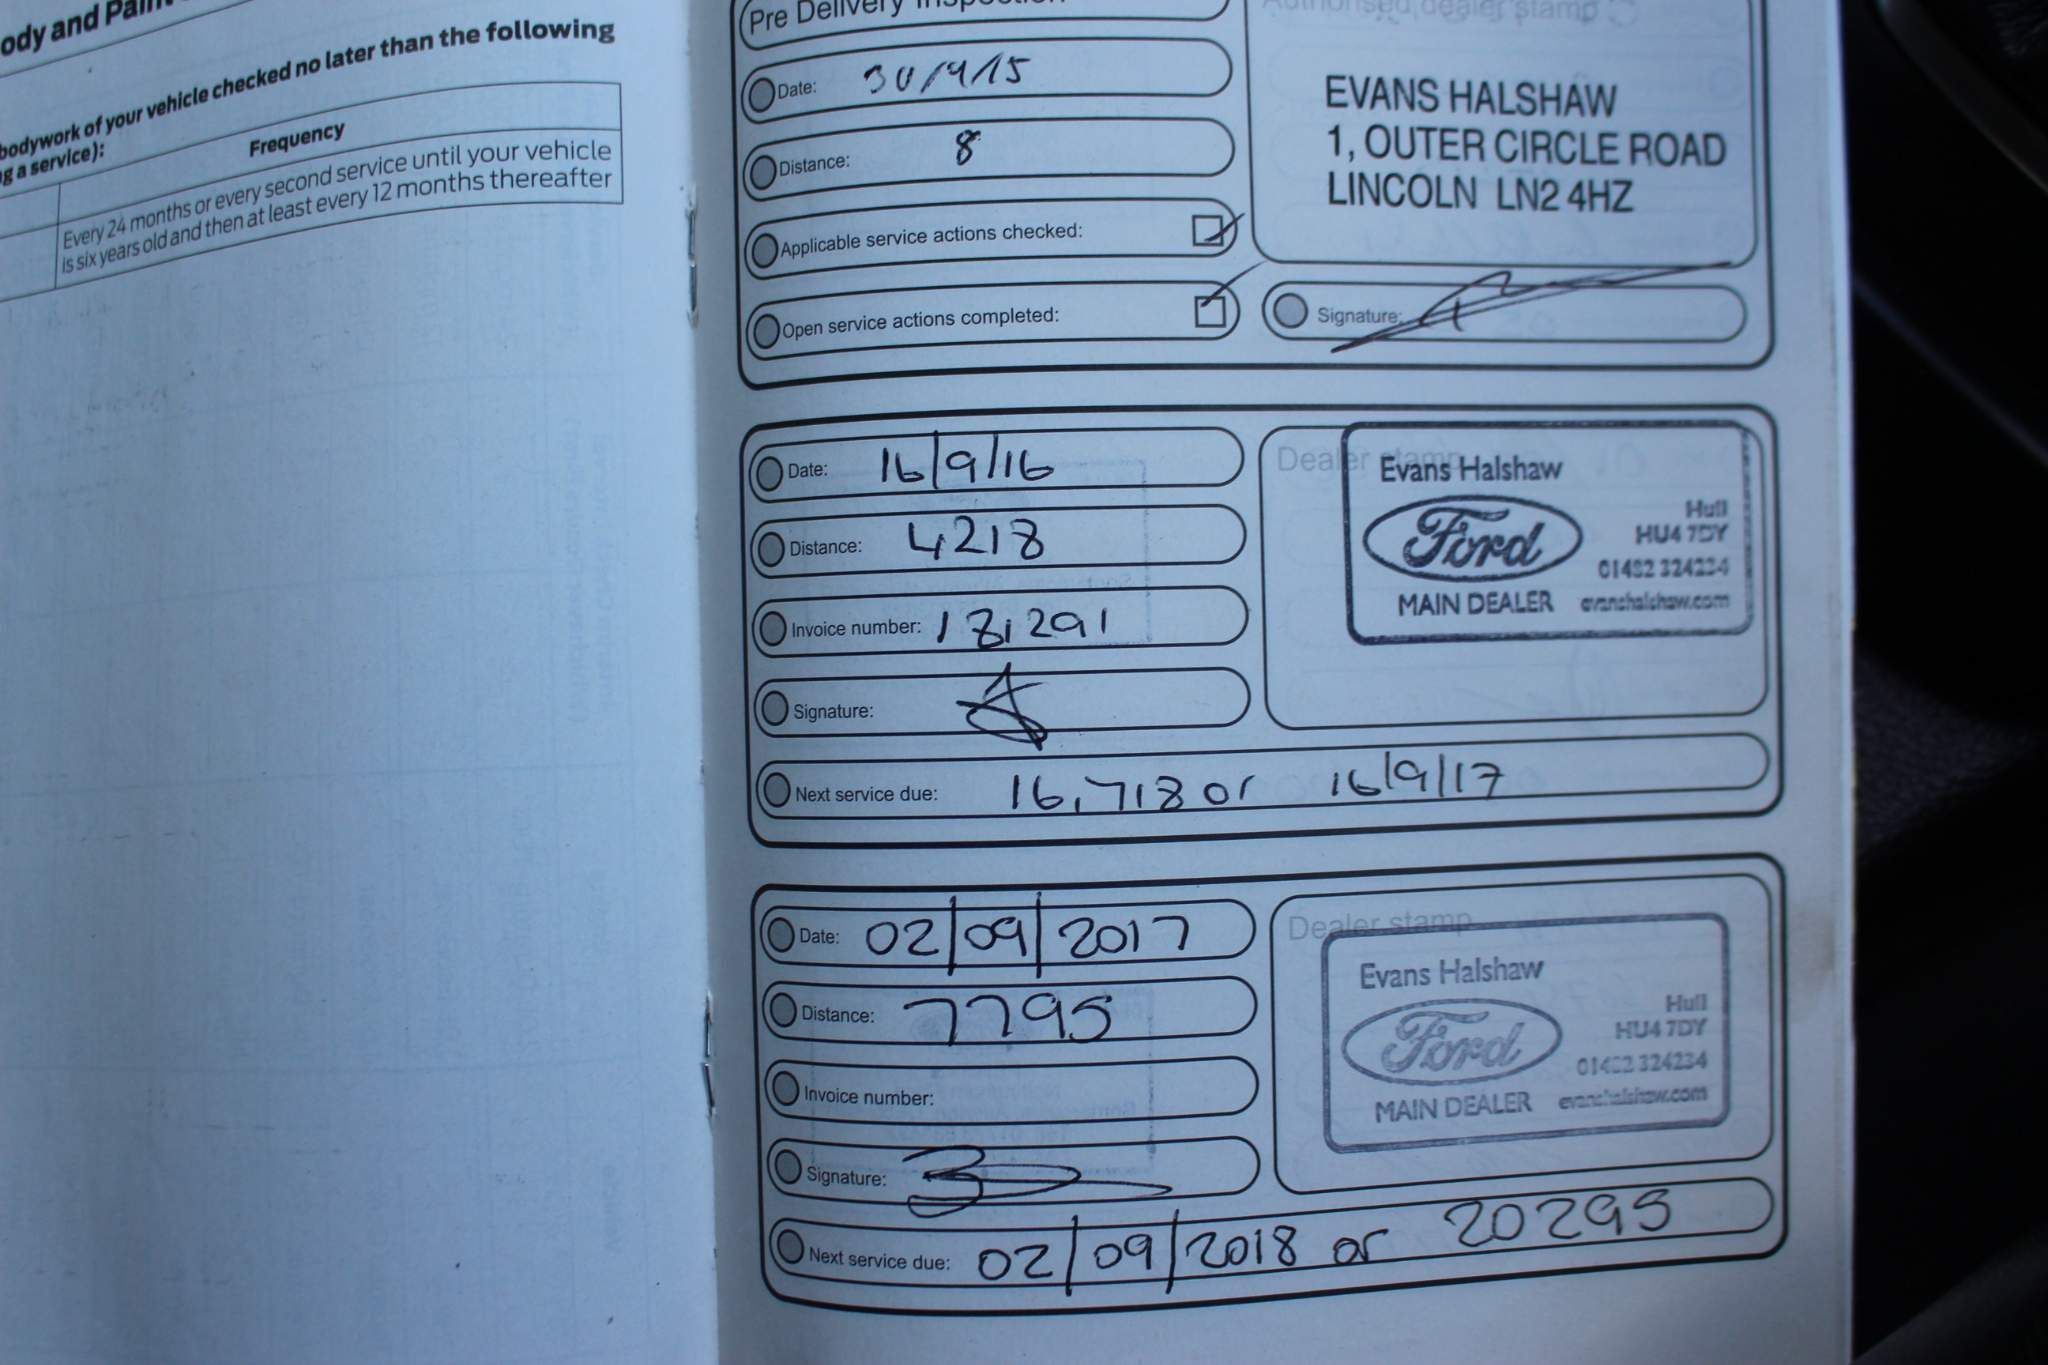 ody and Pain
bodywork of your vehicle checked no later than the following
g a service):
Frequency
Every 24 months or every second service until your vehicle
is six years old and then at least every 12 months thereafter
Pre Delivery Inspection
Authorised dealer stamp
Date: 30/9/15
Distance: 8
Applicable service actions checked:
Open service actions completed:
EVANS HALSHAW
1, OUTER CIRCLE ROAD
LINCOLN LN2 4HZ
Signature:
Date: 16/9/16
Distance: 4218
Invoice number: 18,291
Signature:
Next service due: 16,718 or 16/9/17
Dealer stamp
Evans Halshaw
Ford
Hull
HU4 7DY
01482 324234
MAIN DEALER evanshalshaw.com
Date: 02/09/2017
Distance: 7795
Invoice number:
Signature:
Next service due: 02/09/2018 or 20295
Dealer stamp
Evans Halshaw
Ford
Hull
HU4 7DY
01482 324234
MAIN DEALER evanshalshaw.com